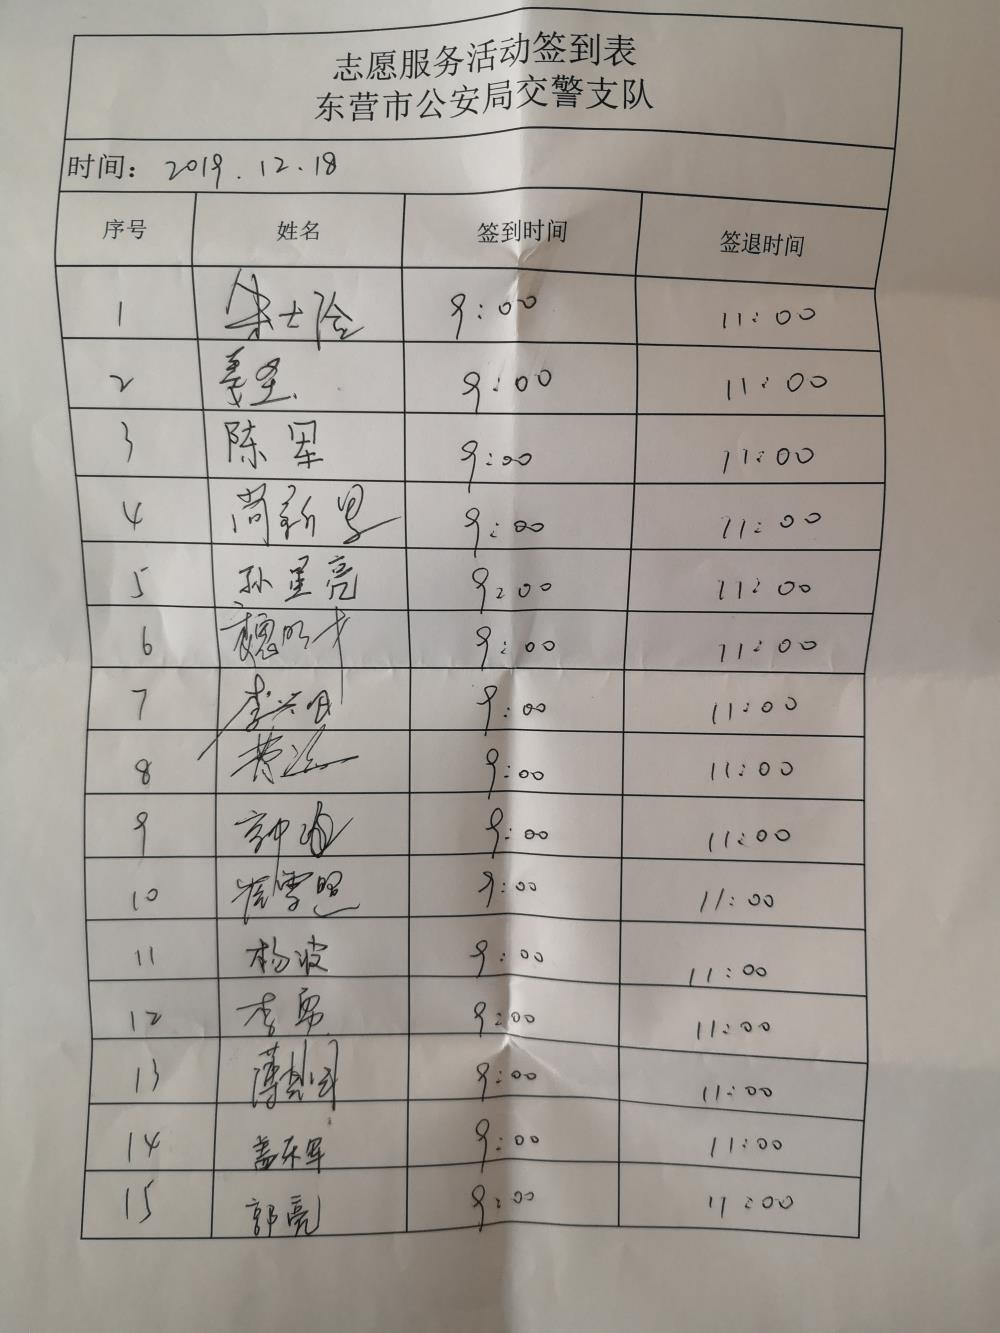 志愿服务活动签到表
东营市公安局交警支队
时间： 2019.12.18
序号 姓名 签到时间 签退时间
1 9:00 11:00
2 9:00 11:00
3 陈军 9:00 11:00
4 尚新 9:00 11:00
5 孙星亮 9:00 11:00
6 魏明才 9:00 11:00
7 李兴 9:00 11:00
8 9:00 11:00
9 9:00 11:00
10 崔雪照 9:00 11:00
11 杨波 9:00 11:00
12 李勇 9:00 11:00
13 薄 9:00 11:00
14 盖东军 9:00 11:00
15 郭亮 9:00 11:00